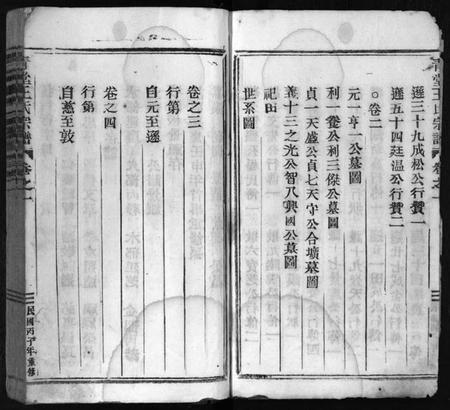 遜三十九成松公行贊一
遜五十四廷溫公行贊二
○卷二
元一亨一公墓圖
利一養公利三傑公墓圖
貞一天盛公貞七天守公合壙墓圖
義十三之光公智八興國公墓圖
祀田
世系圖
卷之三
行第
自元至遜
卷之四
行第
自慈至敦
堂王氏宗譜
卷之一
民國丙子年重修